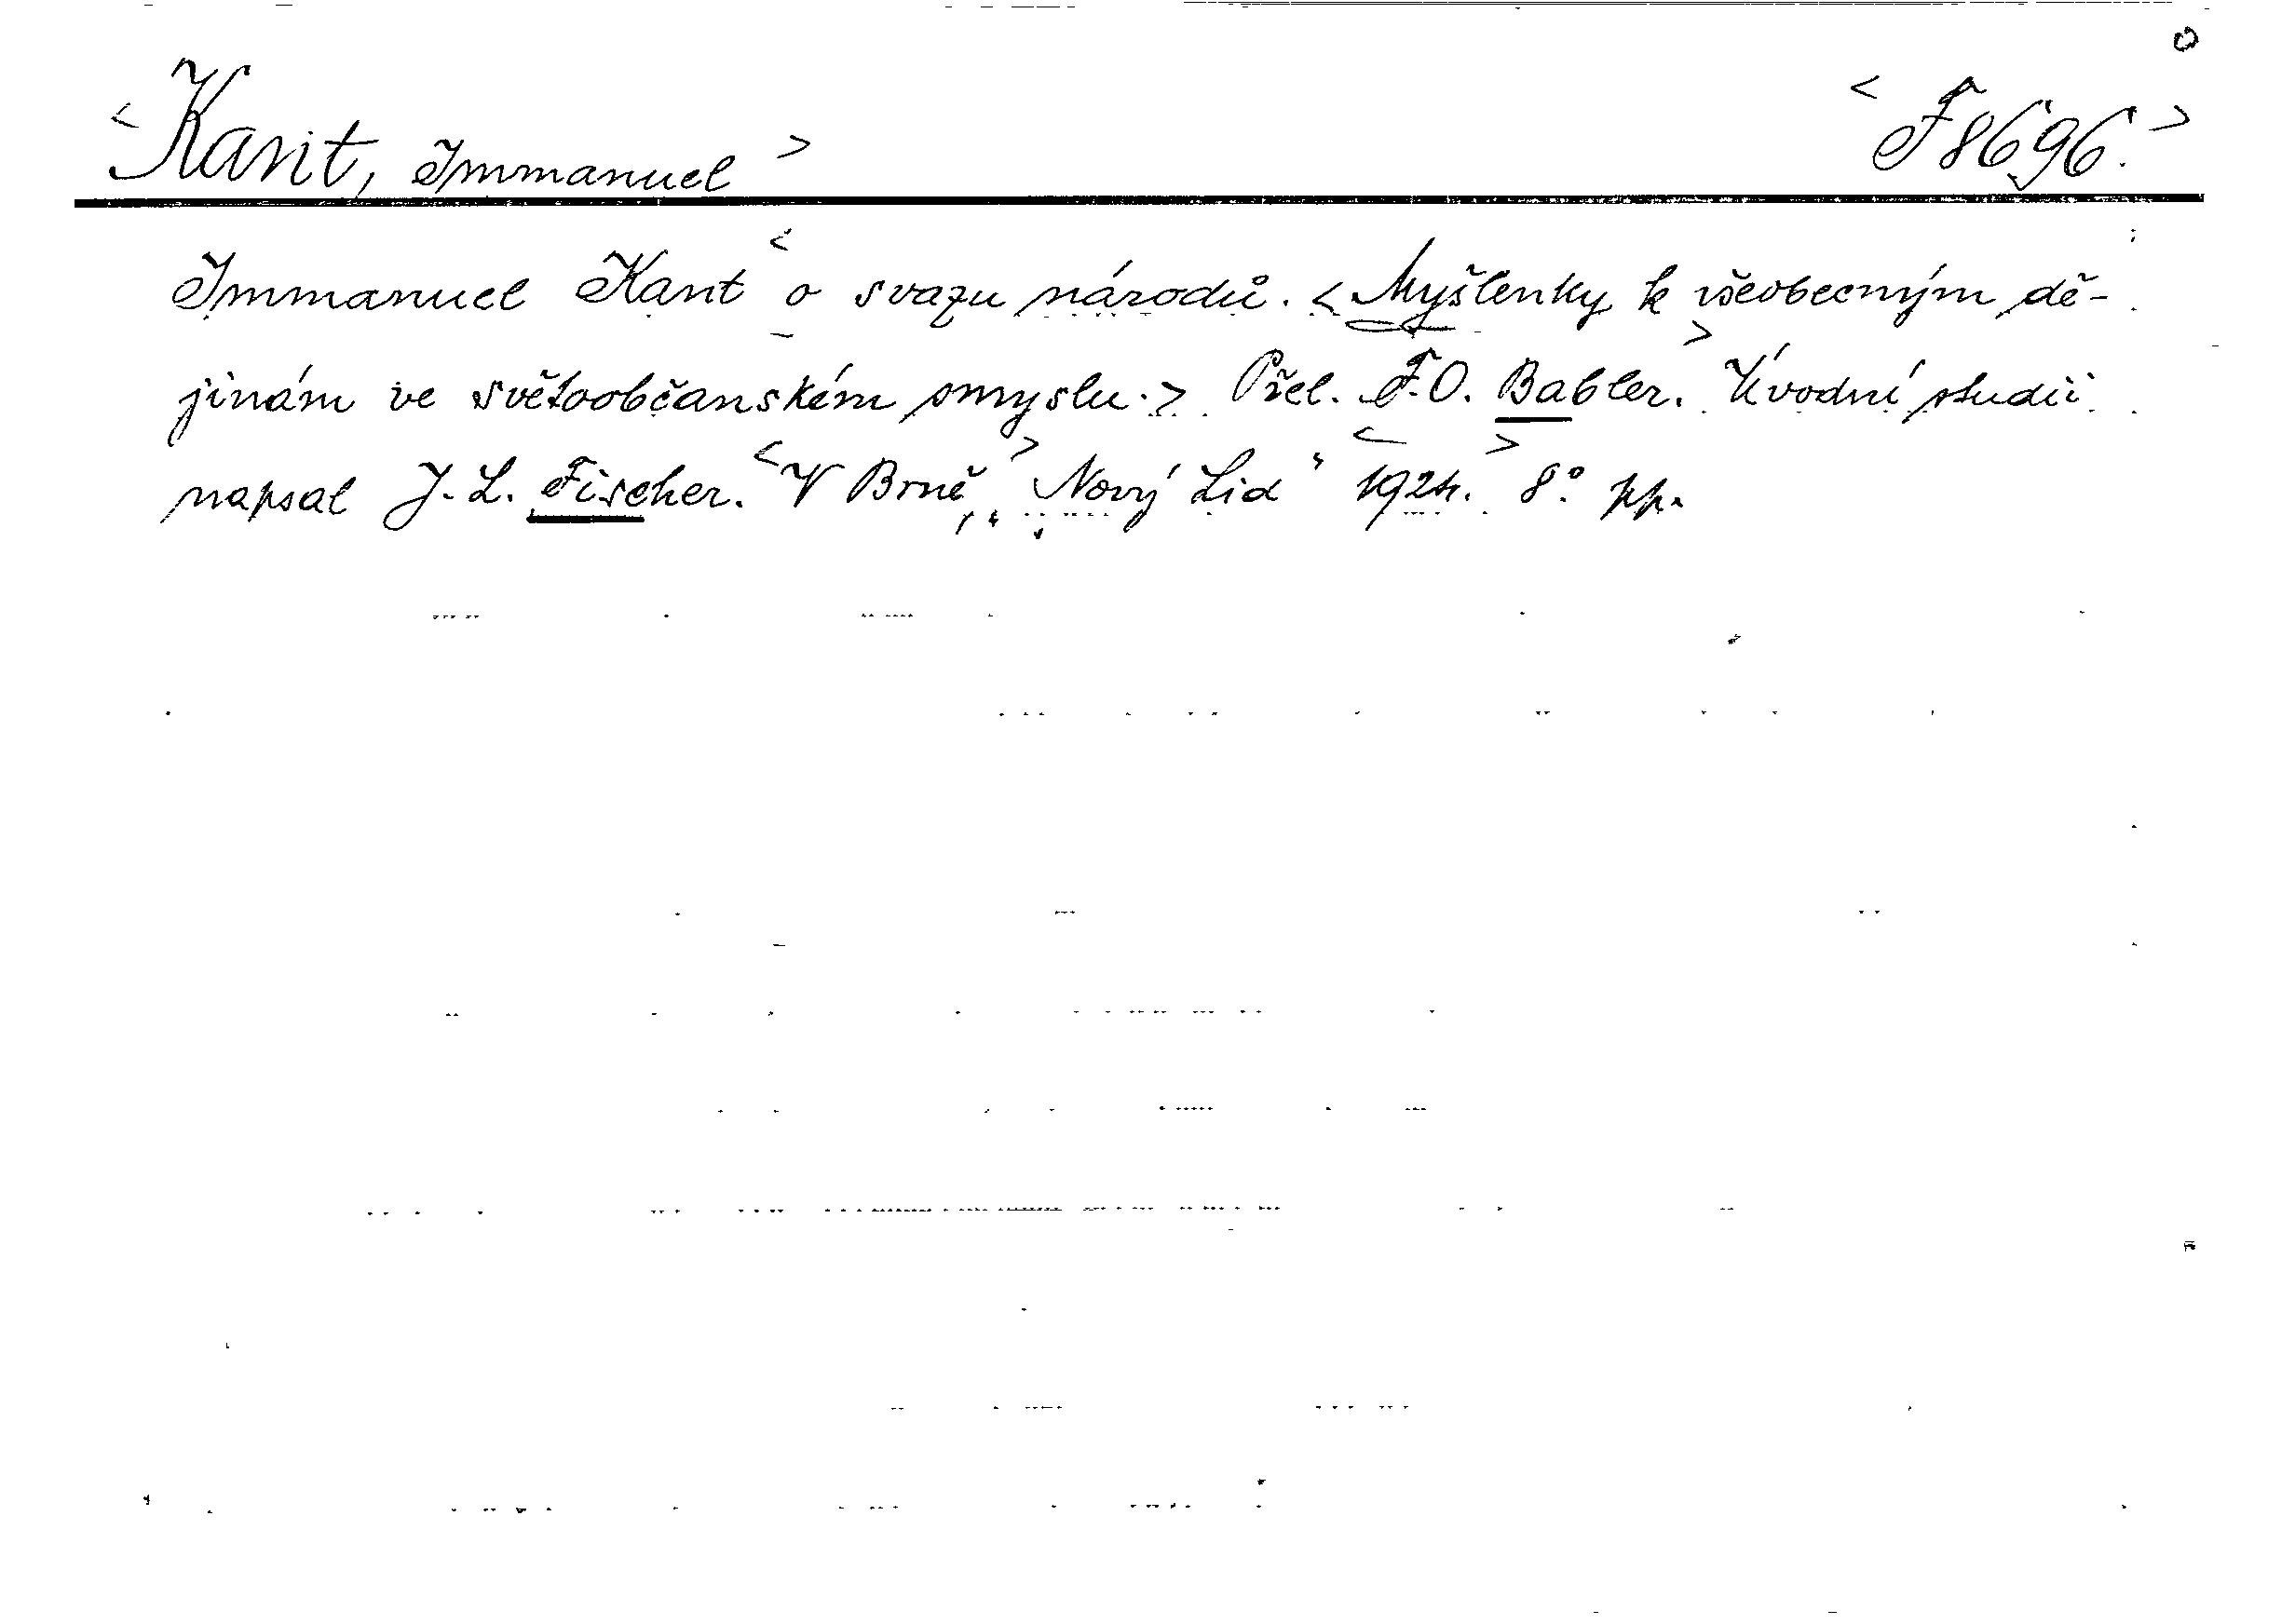 <Kant, Immanuel> <F 8696.>
Immanuel Kant <o svazu národů. <Myšlenky k všeobecným dě-
jinám ve světoobčanském smyslu.> Přel. F.O. Babler.> Úvodní studii
napsal J. L. Fischer. <V Brně,> „Nový Lid“ <1924.> 8° pp.